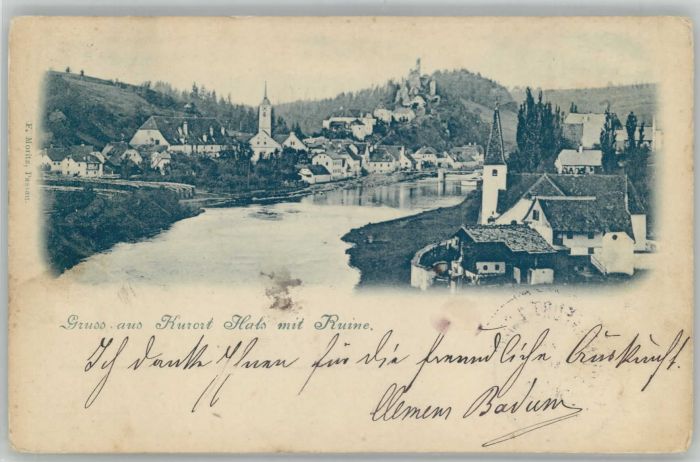 E. Moritz, Passau.
Gruss aus Kurort Hals mit Ruine.
Ich danke Ihnen für die freundliche Auskunft.
Clemens Badum